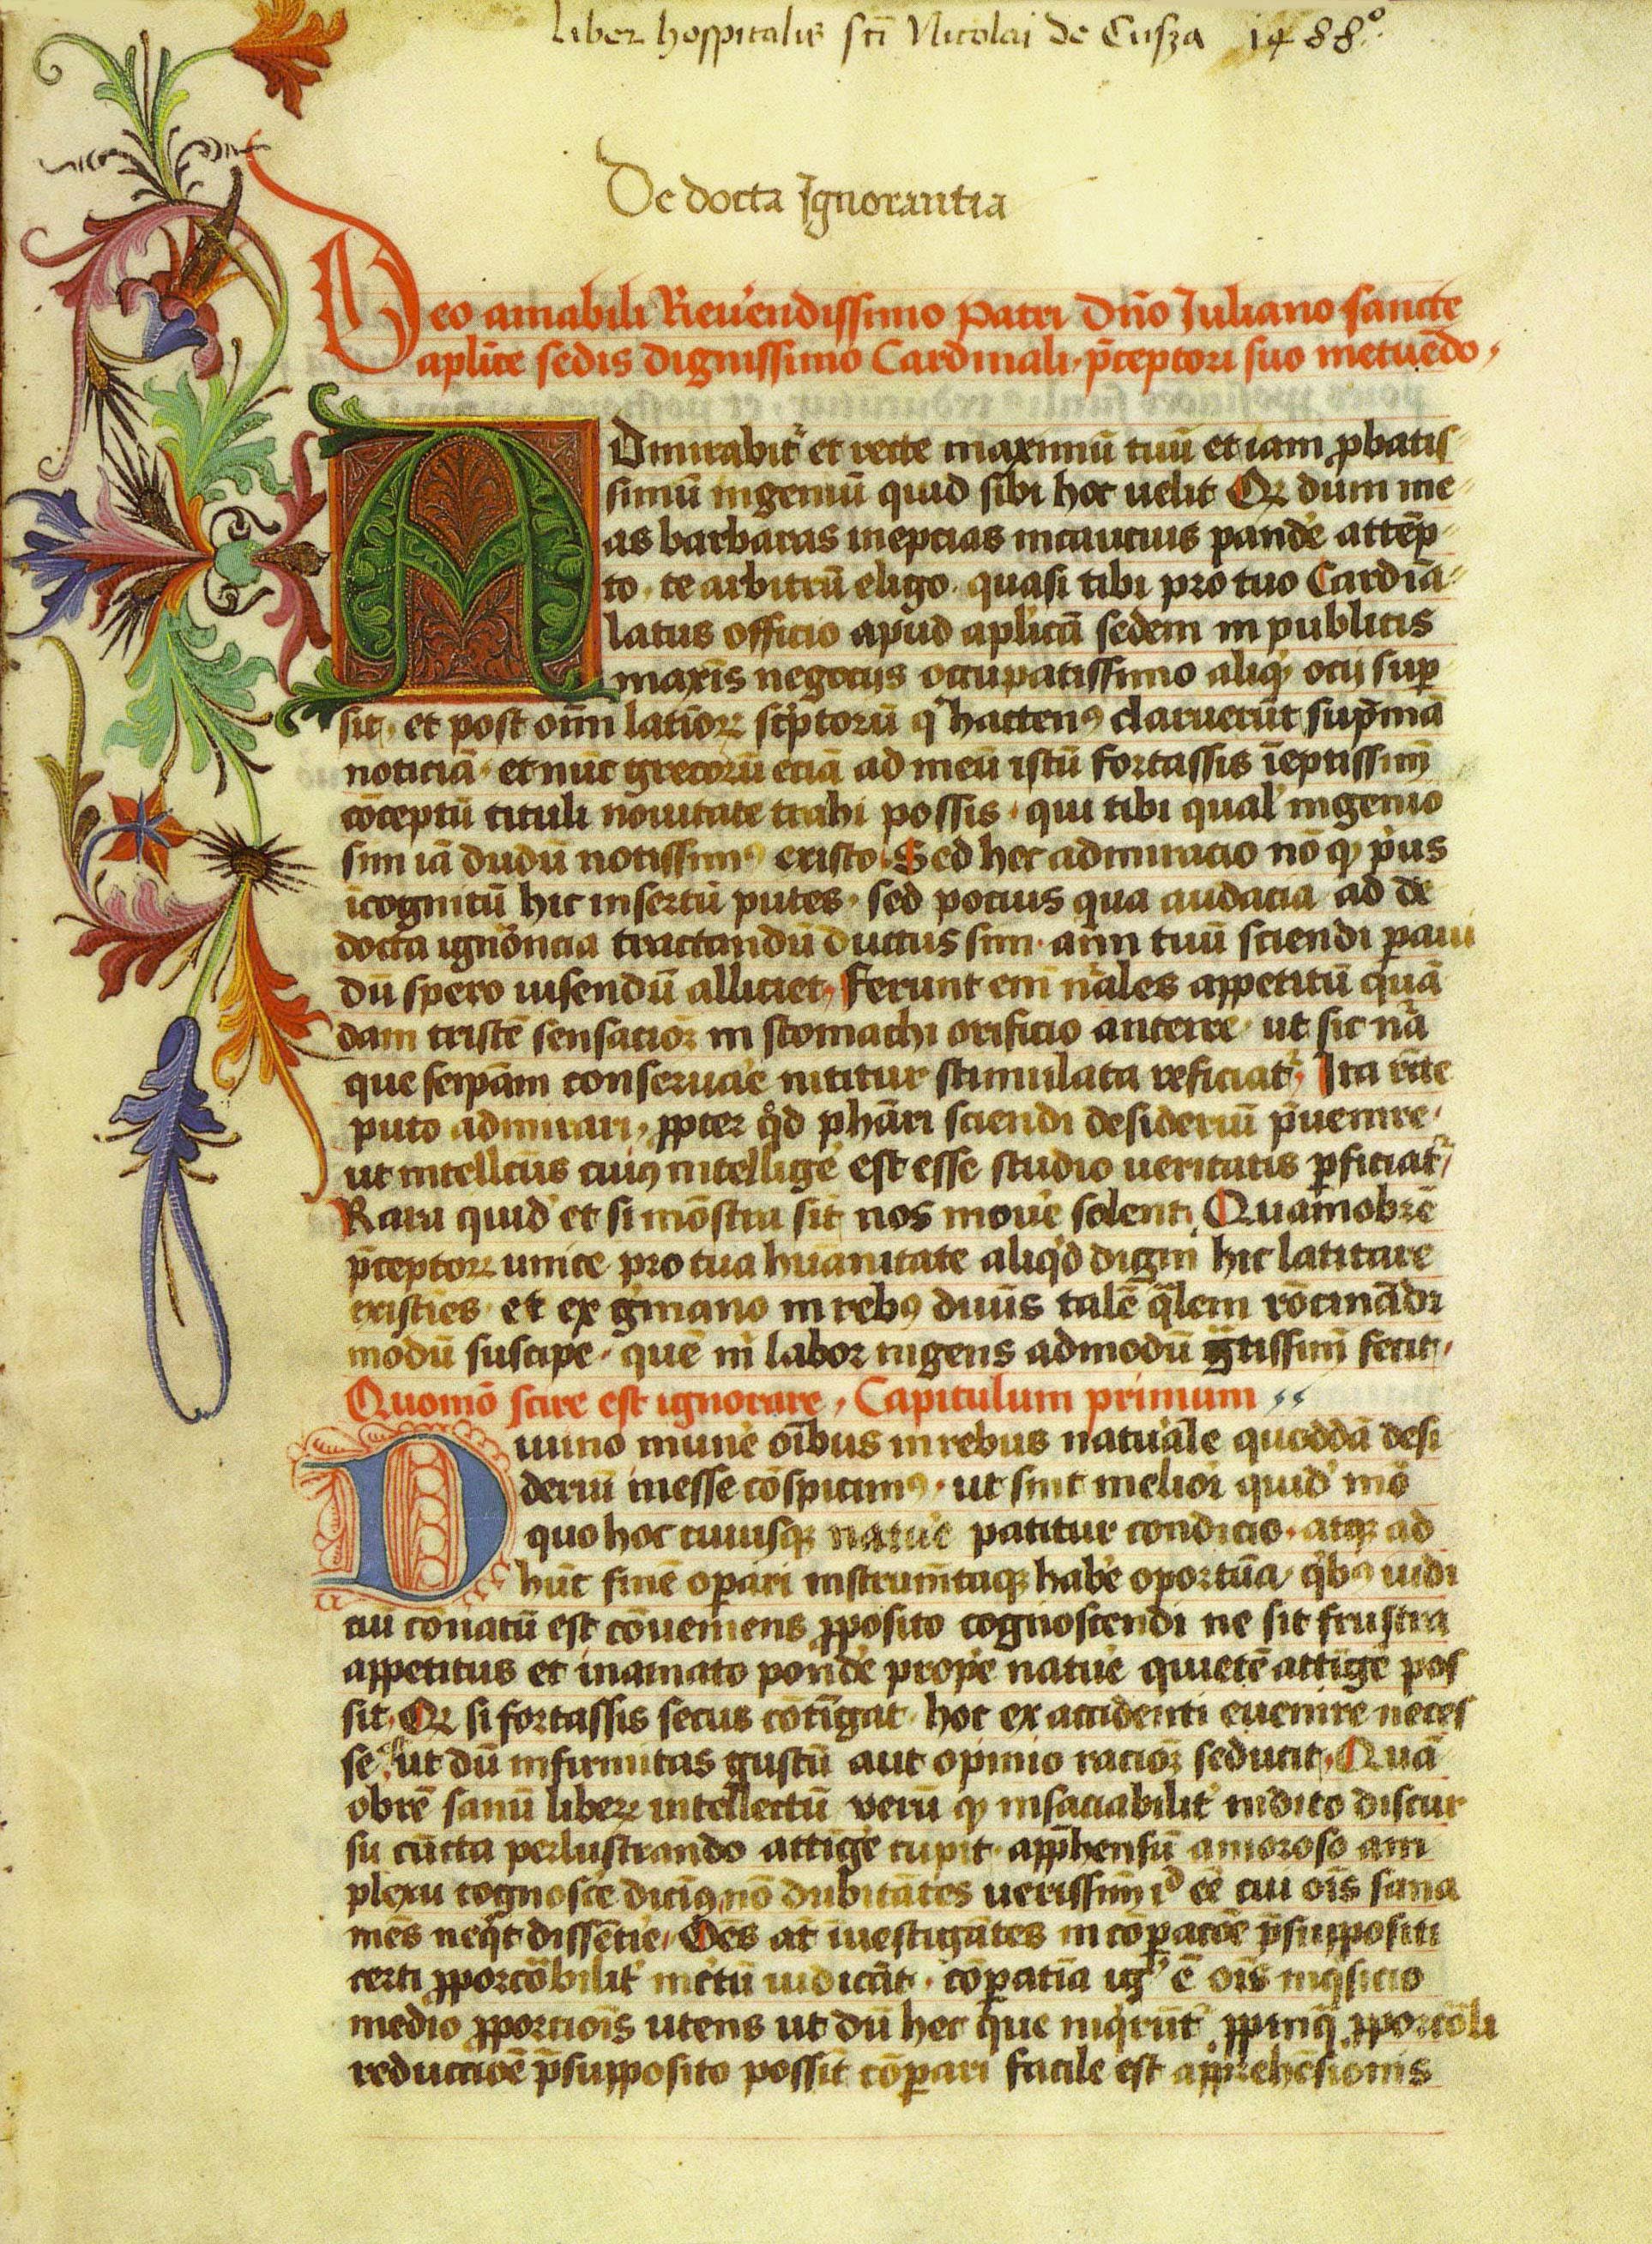 liber hospitalis scti Nicolai de Cusza 1488º
De docta Ignorantia
Deo amabili Reuerendissimo patri Dño Juliano sancte
aplice sedis dignissimo Cardinali, p̄ceptori suo metuēdo,
ADmirabit᷑ et recte maximū tuū et iam ꝓbatis
simū ingeniū quid sibi hoc uelit Qꝫ dum me
as barbaras ineptias incautius pande᷑ attēp
to, te arbitrū eligo, quasi tibi pro tuo Cardīa
latus officio apud aplicā sedem in publicis
maxīs negocijs occupatissimo aliqͥd ocij suꝑ
sit, et post oīm latīoꝝ sc̄ptorū qͥ hactenꝰ claruerūt sup̄mā
noticiā, et nūc grecorū eciā ad meū istū fortassis īeptissimū
cōceptū tituli nouitate trahi possis, qui tibi qual᷑ ingenio
sim iā dudū notissimꝰ existo. Sed hec admiracio nō ꝙ pͥus
īcognitū hic insertū putes, sed pocius qua audacia ad de
docta ignorācia tractandū ductus sim, aīm tuū sciendi ꝑaui
dū spero uisendū alliciet, Ferunt eīm nāles appetitū quā
dam tristē sensacioꝫ in stomachi orificio anteire, ut sic nā
que seipām conseruare nititur stimulata reficiat᷑, Ita rīte
puto admirari, ꝓpter qͦd phāri sciendi desideriū p̄uenire,
ut intellcūs cuiꝰ intellige᷑ est esse studio ueritatis ꝑficiat᷑,
Rara quid᷑ et si mōstra sīt nos moue᷑ solent, Quamobrē
p̄ceptoꝝ unice pro tua hūanitate aliqͥd digni hic latitare
existies, et ex g᷑mano in rebꝰ diuīs talē qͣlem rōcinādi
modū suscipe, quē m̄ labor ingens admodū gͣtissimū fecit,
Quomō scire est ignorare, Capitulum primum
Diuino mune᷑ oībus in rebus naturale quoddā desi
deriū inesse cōspicimꝰ, ut sint meliori quid᷑ mō
quo hoc cuiusqꝫ nature patitur condicio, atqꝫ ad
hūc finē oꝑari instrumētaqꝫ habe᷑ oportūa, qͥbꝰ iudi
ciū cōnatū est cōueniens ꝓposito cognoscendi ne sit frustra
appetitus et in amato ponde᷑ propͥe nature quietē attige᷑ pos
sit, Qꝫ si fortassis secus cōtīgat, hoc ex accidenti euenire neces
se, ut dū infirmitas gustū aut opinio racioꝫ seducit, Quā
obrē sanū libeꝝ intellectū verū ꝙ insaciabilit᷑ indito discur
su cūcta perlustrando attige᷑ cupit, appͣhensū amoroso am
plexu cognosce᷑ dicimꝰ nō dubitātes uerissimū id eē cui oīs sana
mēs neqͥt dissētire, Oēs aūt īuestigātes in cōparatōe p̄suppositi
certi ꝓporcōbilit᷑ incertū iudicāt, cōparatīa igͥ ē oīs inqͥsicio
medio ꝓporciōis utens ut dū hec que inqͥrūt᷑ ꝓpinqͣ ꝓporcōli
reductiōē p̄supposito possīt cōꝑari facile est apprehēsionis